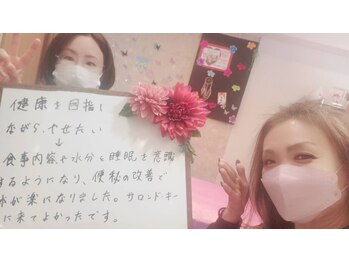 健康を目指し
ながら、やせたい
↓
食事内容や水分と睡眠を意識
するようになり、便秘の改善で
体が楽になりました。サロンド·キー
に来てよかったです。